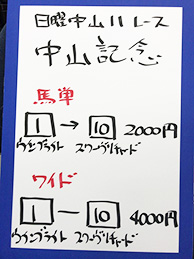 日曜中山11レース
中山記念
馬単
1→10 2000円
ウインブライト スワーヴリチャード
ワイド
1－10 4000円
ウインブライト スワーヴリチャード